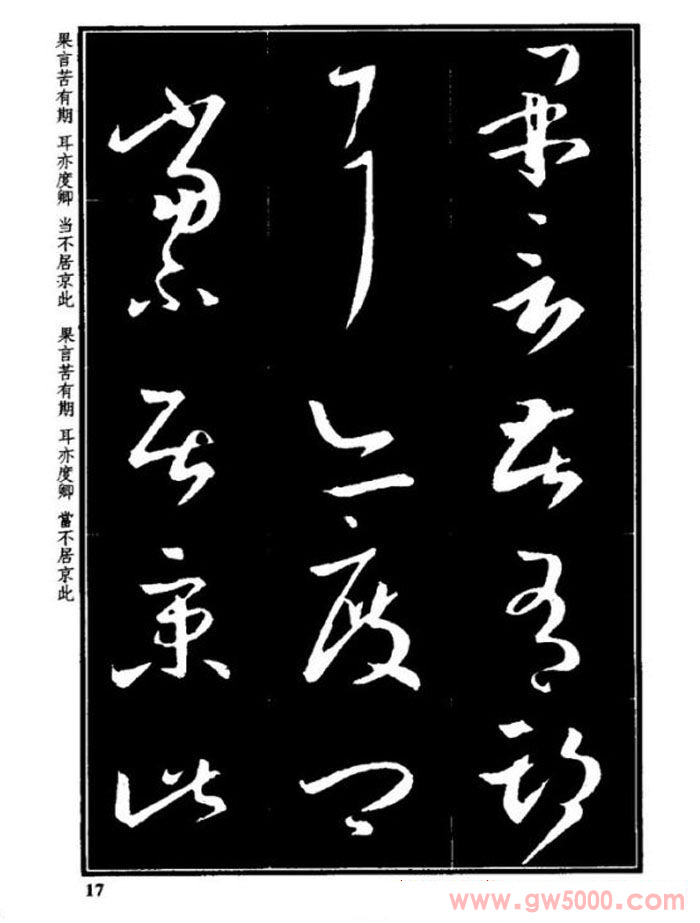 果言苦有期
耳亦度卿
当不居京此
果言苦有期 耳亦度卿 当不居京此
果言苦有期 耳亦度卿 當不居京此
17
www.gw5000.com